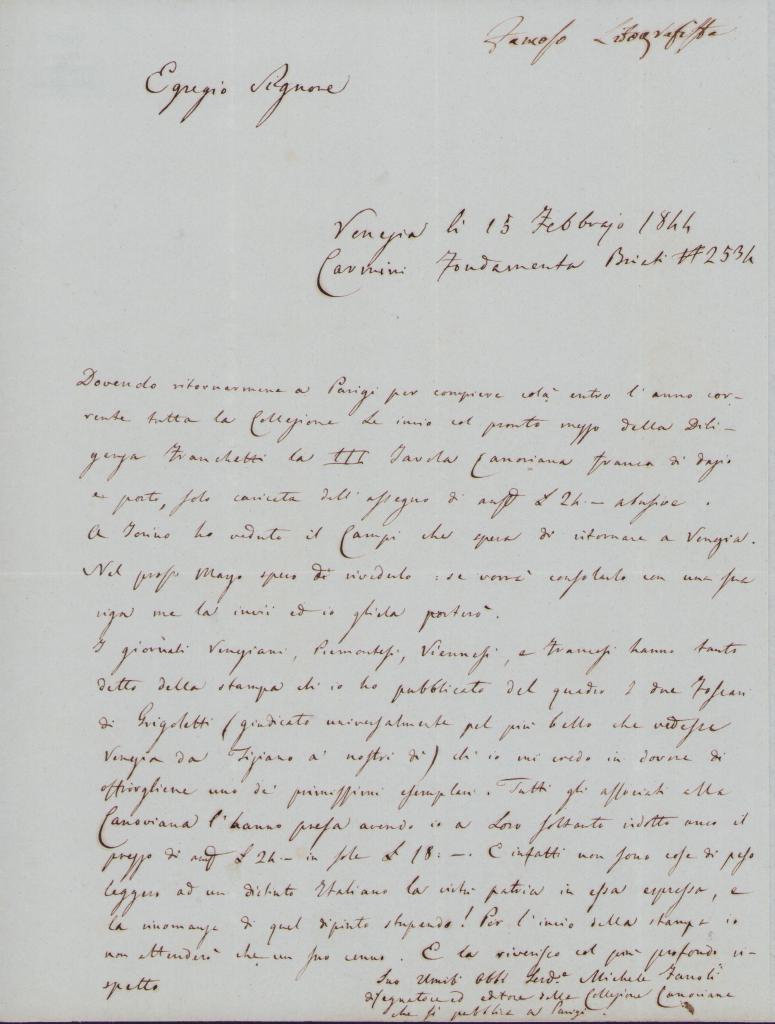 Famoso Litografista
Egregio Signore
Venezia li 15 Febbrajo 1844
Carmini Fondamenta Briati N 2534
Dovendo ritornarmene a Parigi per compiere colà entro l'anno cor-
rente tutta la Collezione Le invio col pronto mezzo della Dili-
genza Franchetti la III Tavola Canoviana franca di dazio
e porto, solo caricata dell'assegno di aust £ 24.- abusive.
A Torino ho veduto il Campi che spera di ritornare a Venezia.
Nel pross. Maggo spero di rivederlo: se vorrà consolarlo con una sua
riga me la invii ed io gliela porterò.
I giornali Veneziani, Piemontesi, Viennesi, e Francesi hanno tanto
detto della stampa ch'io ho pubblicato del quadro I due Foscari
di Grigoletti (giudicato universalmente pel più bello che vedesse
Venezia da Tiziano a' nostri dì) ch'io mi credo in dovere di
offrirgliene uno de' primissimi esemplari. Tutti gli associati alla
Canoviana l'hanno presa avendo io a Loro soltanto ridotto anco il
prezzo di aust £ 24.- in sole £ 18:-. E infatti non sono cose di peso
leggero ad un distinto Italiano la patria in essa espressa, e
la rinomanza di quel dipinto stupendo! Per l'invio della stampa io
non attenderò che un suo cenno. E la riverisco col più profondo ri-
spetto
Suo Umil. Obbl. Serd.e Michele Fanoli
disegnatore ed editore della Collezione Canoviana
che si pubblica a Parigi.